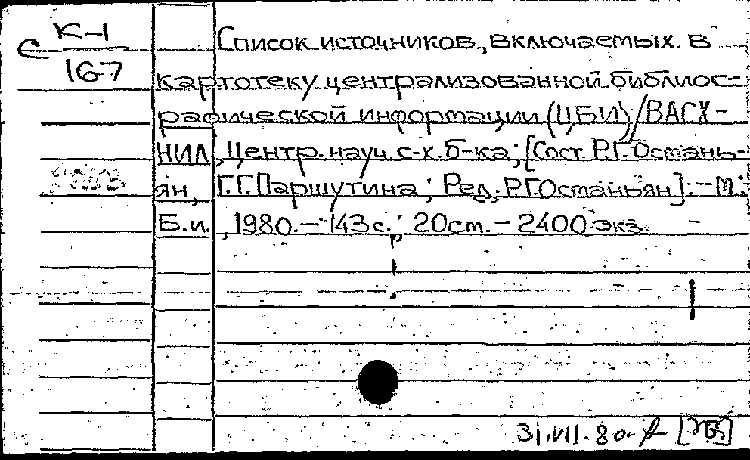 с К-1
167
Список источников, включаемых в
картотеку централизованной библиог-
рафической информации (ЦБИ) / ВАСХ-
НИЛ, Центр. науч. с-х. б-ка; [Сост. Р.Г. Остань-
ян, Г.Г. Паршутина; Ред. Р.Г. Останьян]. - М.:
Б.и., 1980. - 143 с.; 20 см. - 2400 экз.
31.VII.80г.